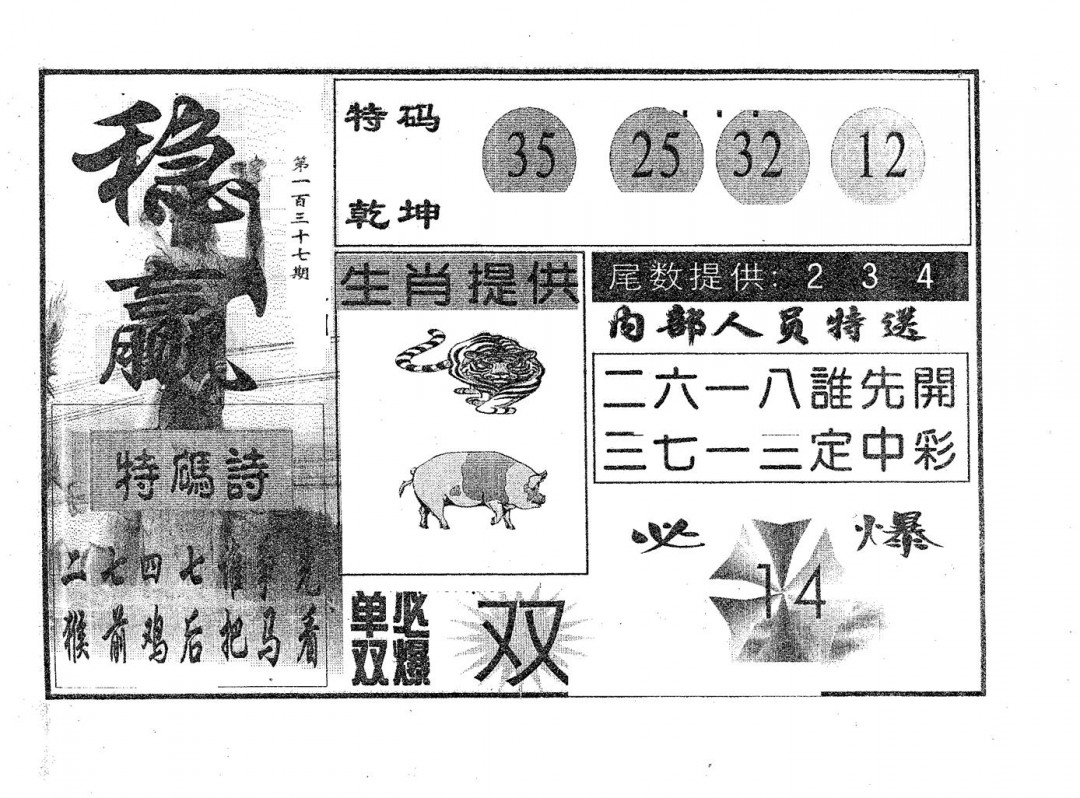 稳赢
第一百三十七期
特码诗
二七四七惟争先
猴前鸡后把马看
特码
乾坤
35 25 32 12
生肖提供
尾数提供: 2 3 4
内部人员特送
二六一八誰先開
三七一三定中彩
必爆
14
单双
必爆
双